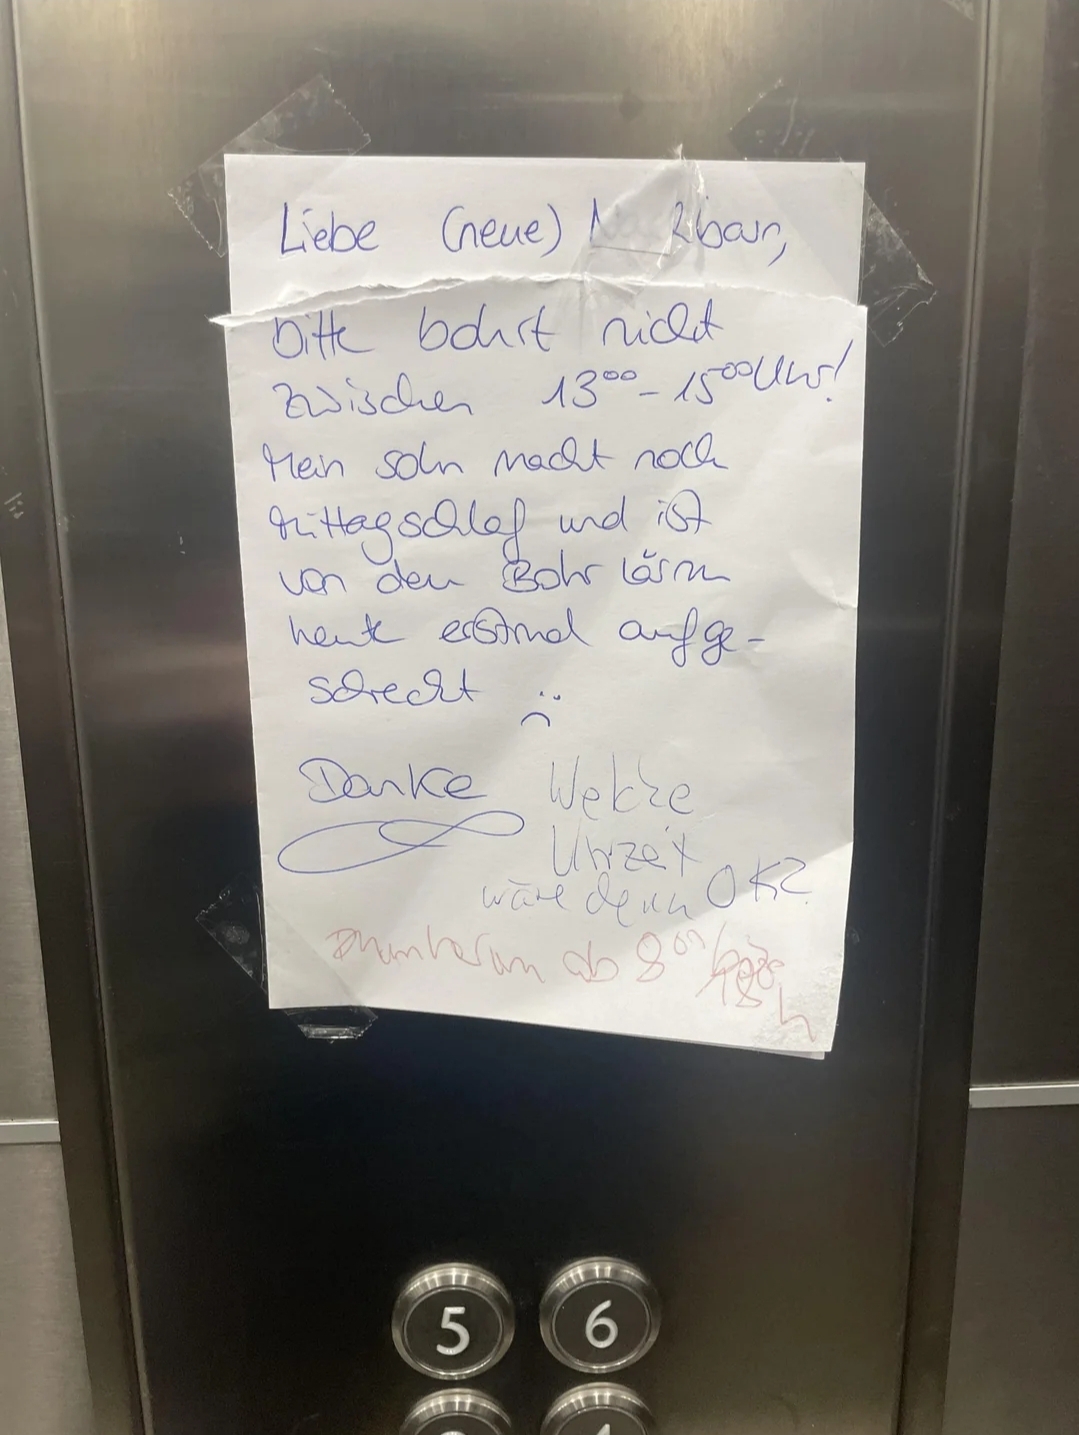 Liebe (neue) Nachbarn,
bitte bohrt nicht
zwischen 13⁰⁰ - 15⁰⁰ Uhr!
Mein Sohn macht noch
Mittagschlaf und ist
von dem Bohr lärm
heute erstmal aufge-
schreckt :(
Danke
Welche
Uhrzeit
wäre denn OK?
ab 8⁰⁰
18
h
5 6